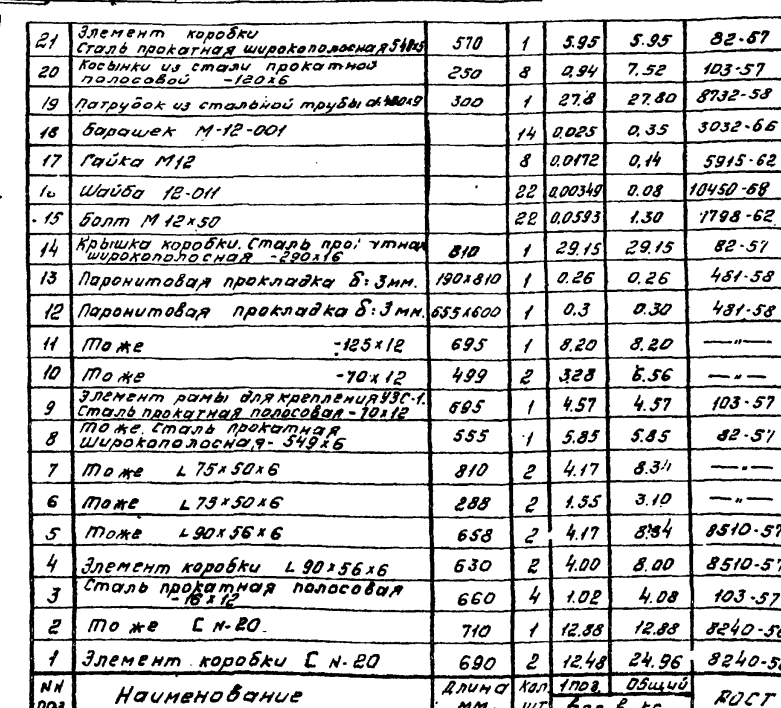 21 Элемент коробки
Сталь прокатная широкополосная 570 1 5.95 5.95 82-57
20 Косынки из стали прокатной
полосовой -120×6 250 8 0,94 7.52 103-57
19 Патрубок из стальной трубы 300 1 27.8 27.80 8732-58
18 Барашек М-12-001 14 0,025 0,35 3032-66
17 Гайка М12 8 0,0172 0,14 5915-62
Шайба 12-011 22 0,00349 0.08 10450-68
15 Болт М 12×50 22 0,0593 1.30 7798-62
14 Крышка коробки. Сталь
широкополосная -290×16 810 1 29.15 29.15 82-57
13 Паронитовая прокладка δ=3мм. 190×810 1 0.26 0.26 481-58
12 Паронитовая прокладка δ=3мм. 655×600 1 0.3 0.30 481-58
11 То же -125×12 695 1 8.20 8.20 —„—
10 То же -70×12 499 2 3.28 6.56 —„—
9 Элемент рамы для крепления УЗС-1.
Сталь прокатная полосовая -70×12 695 1 4.57 4.57 103-57
8 То же. Сталь прокатная
широкополосная- 549×6 555 1 5.85 5.85 82-57
7 То же L 75×50×6 810 2 4.17 8.34 —„—
6 То же L 75×50×6 288 2 1.55 3.10 —„—
5 То же L 90×56×6 658 2 4.17 8.34 8510-57
4 Элемент коробки L 90×56×6 630 2 4.00 8.00 8510-57
3 Сталь прокатная полосовая
-16×12 660 4 1.02 4.08 103-57
2 То же [ N-20 710 1 12.88 12.88 8240-56
1 Элемент коробки [ N-20 690 2 12.48 24.96 8240-56
NN
поз. Наименование Длина
мм. Кол.
шт 1 поз. Общий
Вес в кг ГОСТ